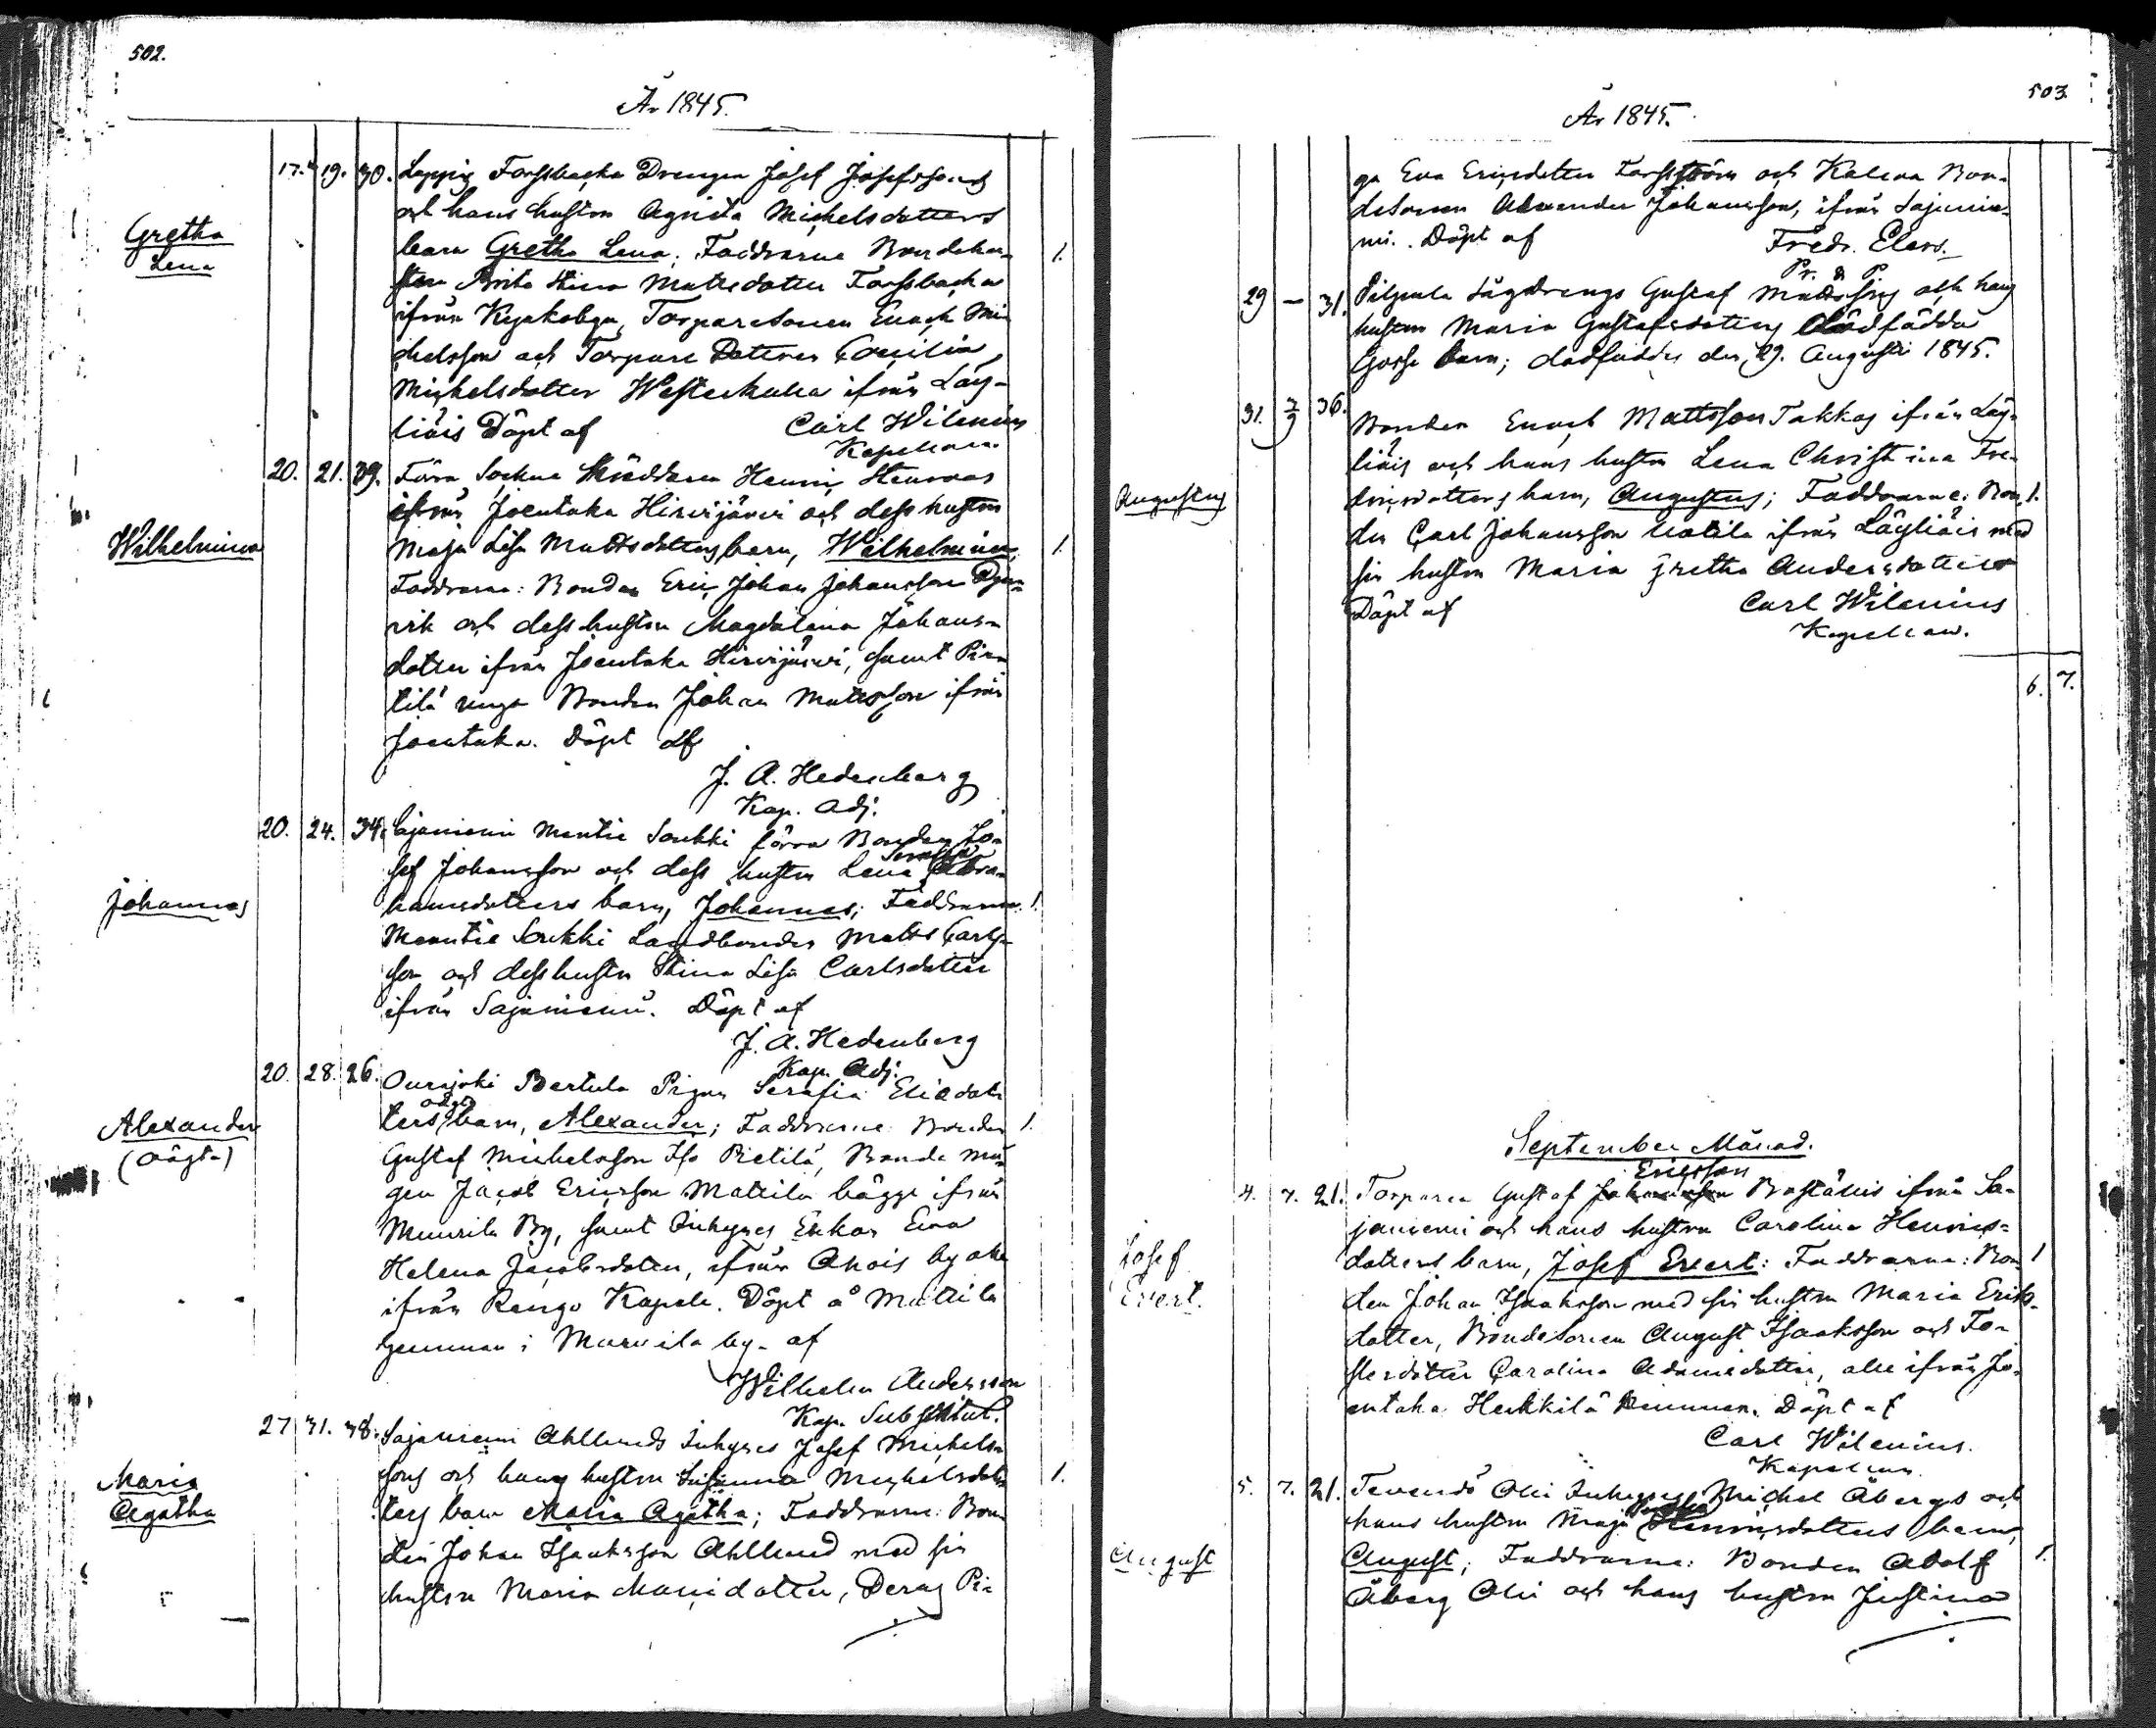 502.
År 1845.
17. 19. 30. Loppis Forssbacka Drengen Josef Josefssons
och hans hustru Agneta Michelsdotters
Gretha
Lena
barn Gretha Lena; Faddrarne Bondehu- 1.
stru Brita Stina Mattsdotter Forssbacka
ifrån Torparesonen Enoch Mi-
chelsson och Torpare Dottren Cecilia
Michelsdotter Westerkulla ifrån Läy-
liäis Döpt af Carl Wilenius
Kapellan.
20. 21. 39. Förra Sockne Skräddaren Henric
ifrån Joentaka Hirvijärvi och dess hustru
Wilhelmina
Maja Lisa Mattsdotters barn, Wilhelmina; 1.
Faddrarne: Bonden Eric Johan Johansson
och dess hustru Magdalena Johans-
dotter ifrån Joentaka Hirvijärvi, samt
unga Bonden Johan Mattsson ifrån
Joentaka. Döpt af
J. A. Hedenberg
Kap. Adj.
20. 24. 34. Sajaniemi Soukki förra Bonden Jo-
sef Johansson och dess hustru Lena Serafia Abra-
Johannes
hamsdotters barn, Johannes; Faddrarne: 1.
Soukki Landbonden Matts Carls-
son och dess hustru Stina Lisa Carlsdotter
ifrån Sajaniemi. Döpt af
J. A. Hedenberg
Kap. Adj.
20. 28. 26. Ourajoki Bertula Pigan Serafia Eliædot-
Alexander
(oägta)
ters oägta barn, Alexander; Faddrarne Bonden 1.
Gustaf Michelsson Iso Pietilä, Bonde må-
gen Jacob Ericsson Mattila bägge ifrån
By, samt Inhyses Enkan Eva
Helena Jacobsdotter, ifrån Ahois by
ifrån Rengo Kapell. Döpt å Mattila
hemman i by. af
Wilhelm Andersson
Kap. Substitut.
27 31. 38. Sajaniemi Ahllunds Inhyses Josef Michels-
sons och hans hustru Susanna Michelsdot- 1.
Maria
Agatha
ters barn Maria Agatha; Faddrarne: Bon-
den Johan Isaksson Ahllund med sin
hustru Maria dotter, Deras Pi-
503.
År 1845.
ga Eva Ericsdotter Forsström och Bon-
desonen Alexander Johansson, ifrån Sajanie-
mi. Döpt af Fredr. Elers.
Pr. & P.
29 — 31. Pilpala Sågdrengs Gustaf Mattssons och hans
hustru Maria Gustafsdotters dödfödda
Gosse barn; dödfödder den 29. Augusti 1845.
31. 7/9 36. Bonden Enoch Mattsson Takkas ifrån Läy-
liäis och hans hustru Lena Christina Fre-
Augustus
dricsdotters barn, Augustus; Faddrarne: Bon- 1.
den Carl Johansson Uotila ifrån Läyliäis med
sin hustru Maria Gretha Andersdotter
Döpt af Carl Wilenius
Kapellan.
6. 7.
September Månad.
4. 7. 21. Torparen Gustaf Ericsson ifrån Sa-
janiemi och hans hustru Carolina Henrics-
Josef
Evert.
dotters barn, Josef Evert: Faddrarne: Bon- 1
den Johan Isaksson med sin hustru Maria Eriks-
dotter, Bondesonen August Isaksson och Fo-
sterdotter Carolina Adamsdotter, alle ifrån Jo-
entaka Heikkilä Hemman. Döpt af
Carl Wilenius.
Kapellan.
5. 7. 21. Teuenäs Inhyses Michel Åbergs och
hans hustru Maja dotters barn,
August
August; Faddrarne: Bonden Adolf 1.
Åberg och hans hustru Justina